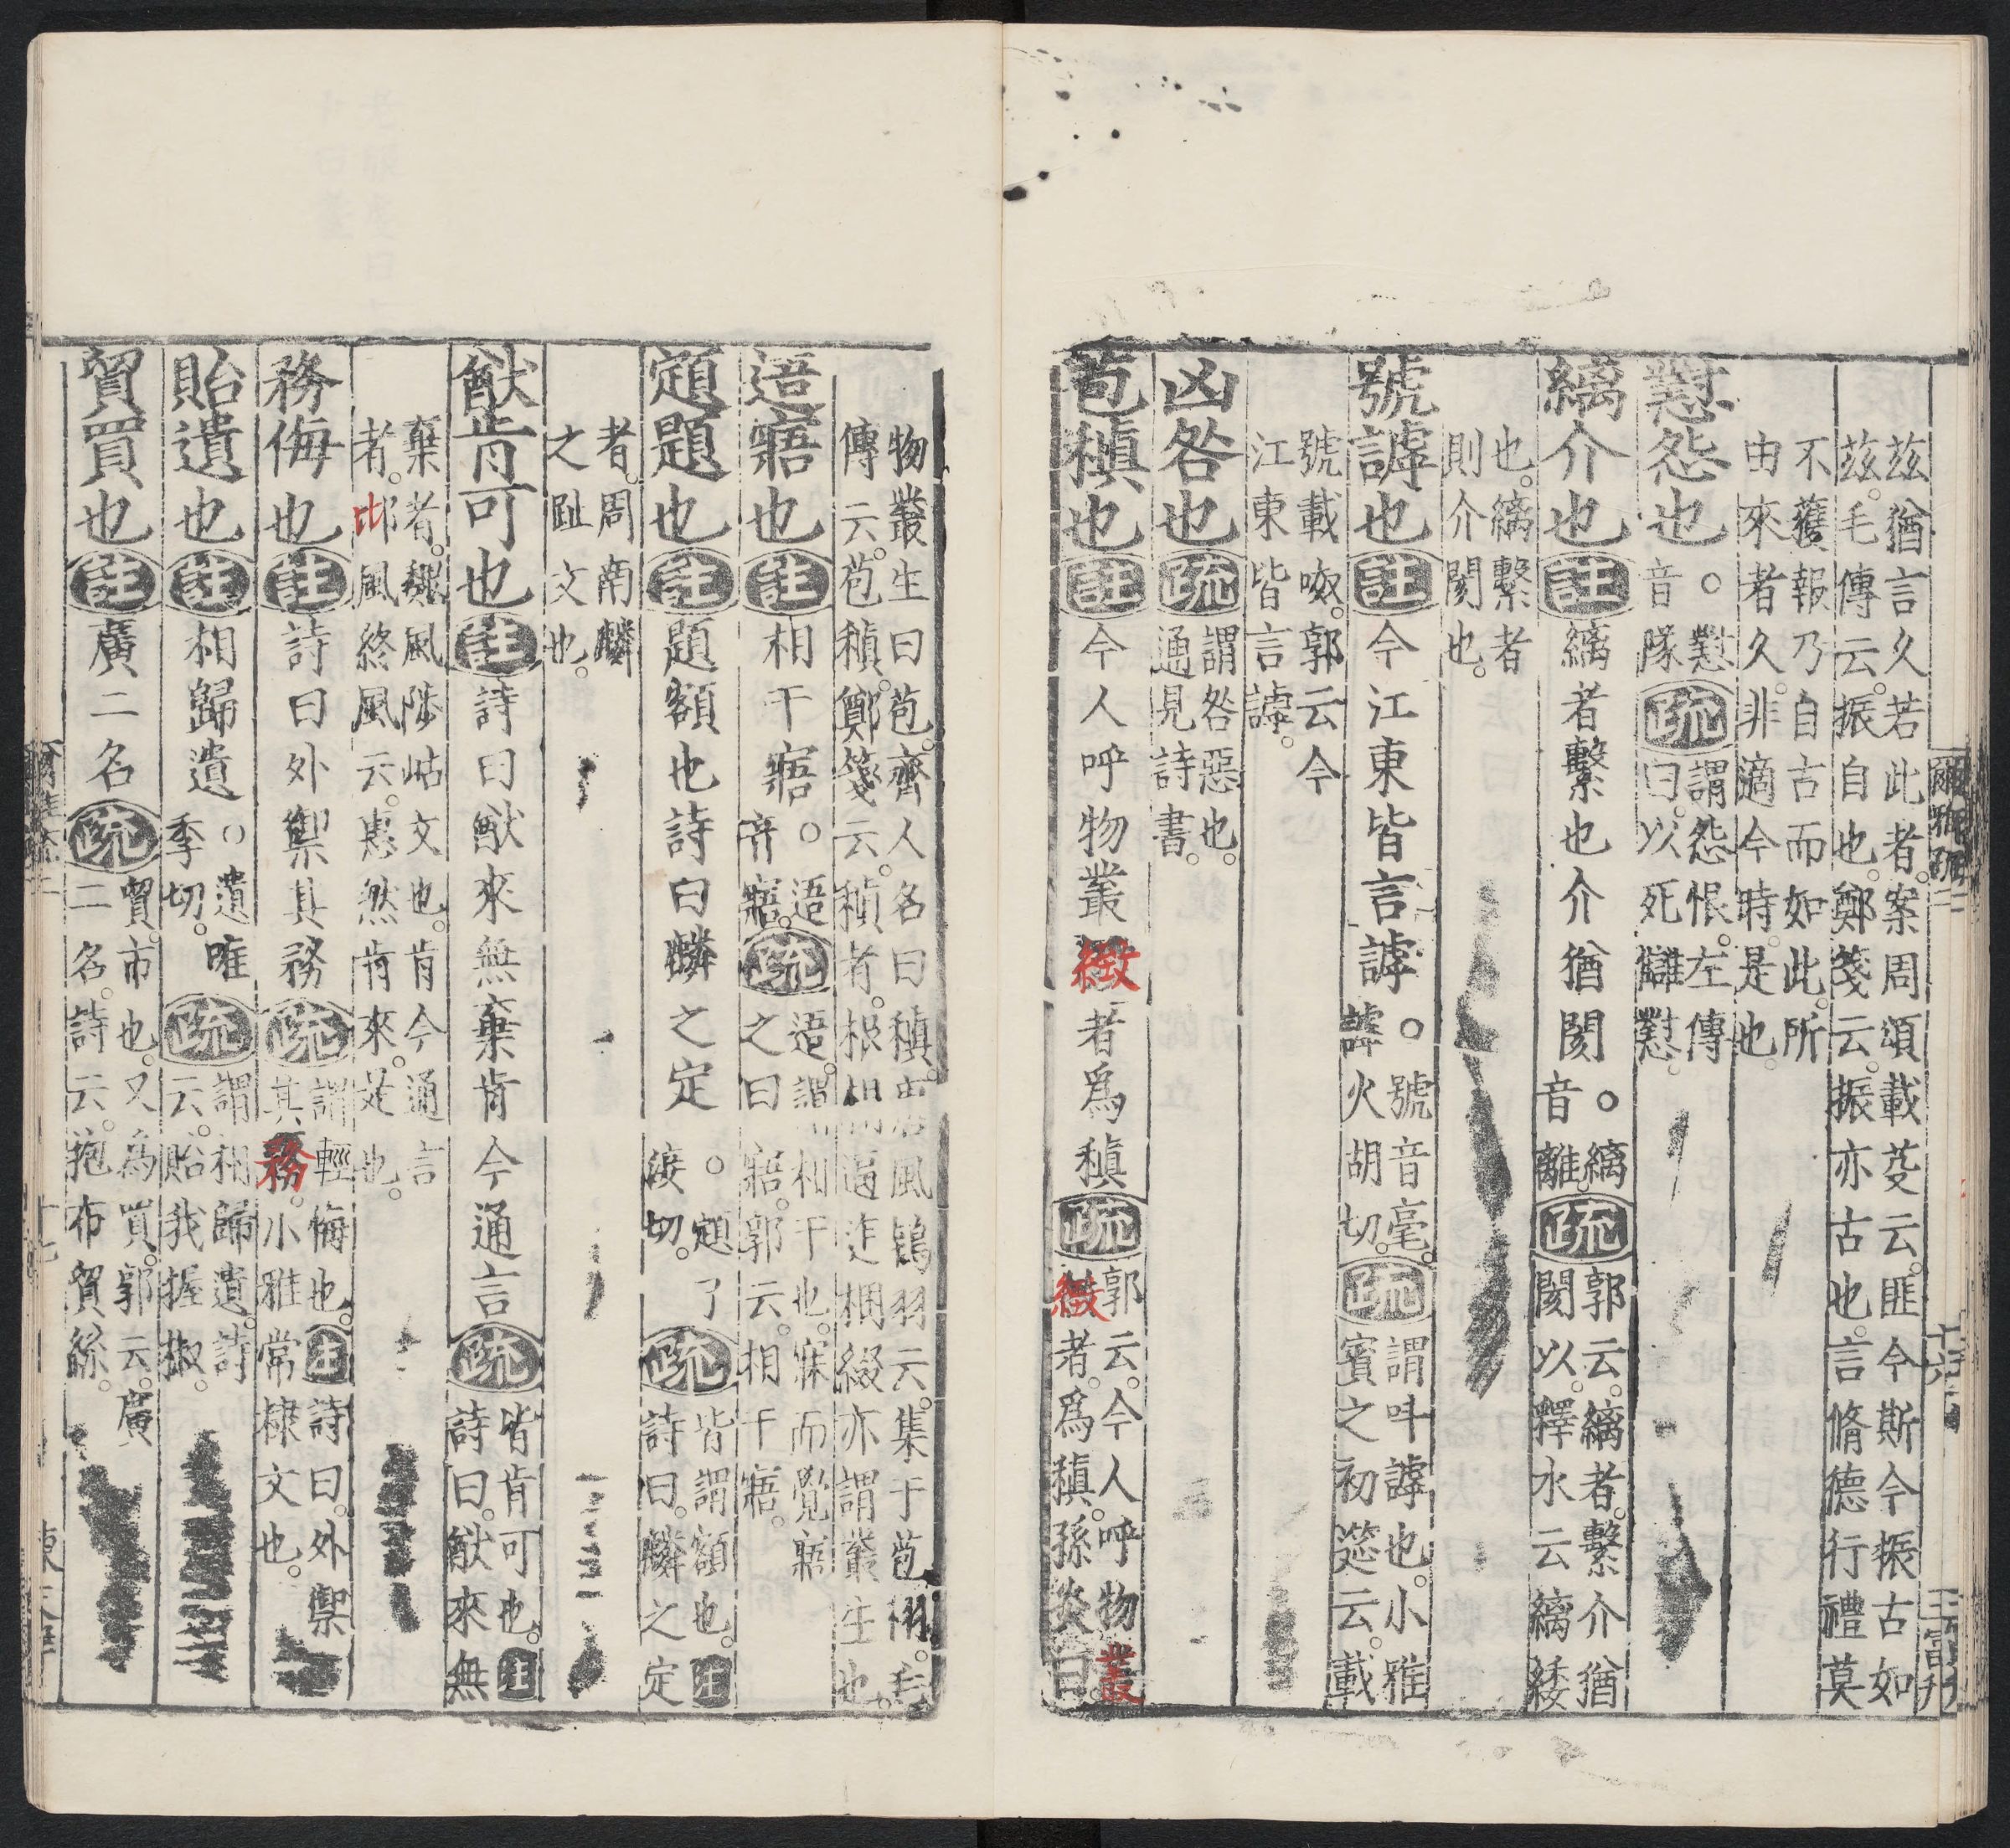 茲猶言久若此者案周頌載芟云匪今斯今振古如
茲毛傳云振自也鄭箋云振亦古也言脩德行禮莫
不獲報乃自古而如此所
由來者久非適今時是也
懟怨也○懟
音隊疏謂怨恨左傳
曰以死讎懟
縭介也註縭者繫也介猶閡○縭
音離疏郭云縭者繫介猶
閡以釋水云縭緌
也縭繫者
則介閡也
號謼也註今江東皆言謼○號音毫
謼火胡切疏謂叫謼也小雅
賓之初筵云載
號載呶郭云今
江東皆言謼
凶咎也疏謂咎惡也
通見詩書
苞稹也註今人呼物叢緻者爲稹疏郭云今人呼物叢
緻者爲稹孫炎曰
物叢生曰苞齊人名曰稹
風鴇羽云集于苞栩毛
傳云苞稹鄭箋云稹者根相迫迮梱緻亦謂叢生也
逜寤也註相干寤○逜
音寤疏逜謂相干也寐而覺寤
之曰寤郭云相干寤
顁題也註題額也詩曰麟之定○顁丁
淡切疏皆謂額也註
詩曰麟之定
者周南麟
之趾文也
猷肯可也註詩曰猷來無棄肯今通言疏皆肯可也註
詩曰猷來無
棄者魏風陟岵文也肯今通言
者邶風終風云惠然肯來是也
務侮也註詩曰外禦其務疏謂輕侮也註詩曰外禦
其務小雅常棣文也
貽遺也註相歸遺○遺唯
季切疏謂相歸遺詩
云貽我握椒
貿買也註廣二名疏貿市也又為買郭云廣
二名詩云抱布貿絲